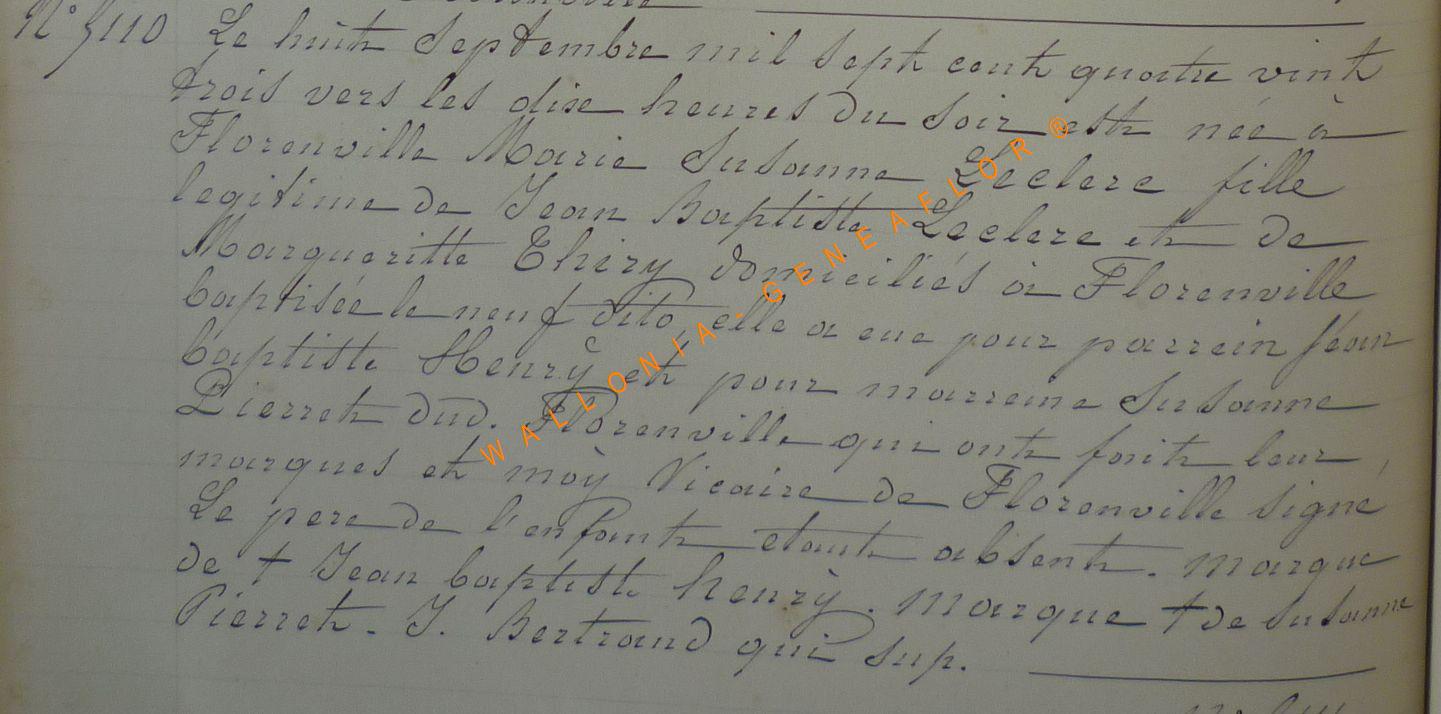 N° 5110 Le huit Septembre mil sept cent quatre vint
trois vers les dixe heures du soir est née à
Florenville Marie Susanne Leclere fille
legitime de Jean Baptiste Leclere et de
Margueritte Thiry domiciliés à Florenville
baptisée le neuf dito, elle a eue pour parrein Jéan
baptiste Henrÿ et pour marreine Susanne
Pierret dud. Florenville qui ont fait leur
marques et moÿ Vicaire de Florenville signé,
Le pere de l'enfant etant absent. Marque
de † Jean baptiste henrÿ. Marque † de Susanne
Pierret. J. Bertrand qui sup.
WALLONIA-GENEAFLOR®